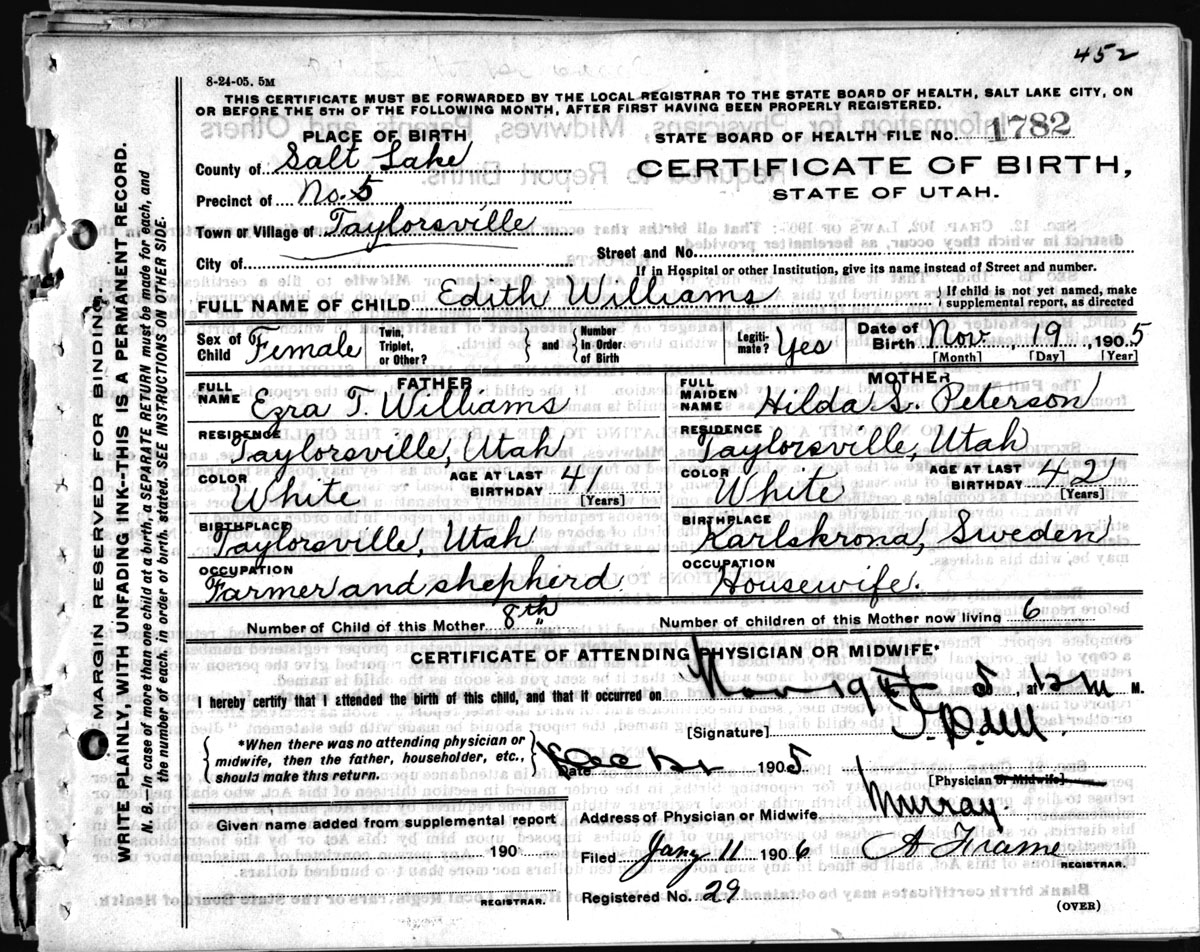 452
8-24-05. 5M
THIS CERTIFICATE MUST BE FORWARDED BY THE LOCAL REGISTRAR TO THE STATE BOARD OF HEALTH, SALT LAKE CITY, ON
OR BEFORE THE 5TH OF THE FOLLOWING MONTH, AFTER FIRST HAVING BEEN PROPERLY REGISTERED.
PLACE OF BIRTH
STATE BOARD OF HEALTH FILE NO. 1782
County of Salt Lake
CERTIFICATE OF BIRTH,
Precinct of No. 5
STATE OF UTAH.
Town or Village of Taylorsville
City of
Street and No.
If in Hospital or other Institution, give its name instead of Street and number.
FULL NAME OF CHILD Edith Williams
{ If child is not yet named, make supplemental report, as directed
Sex of Child Female
Twin, Triplet, or Other? } and { Number in Order of Birth
Legitimate? Yes
Date of Birth Nov. 19, 1905
[Month] [Day] [Year]
FATHER
MOTHER
FULL NAME Ezra T. Williams
FULL MAIDEN NAME Hilda S. Peterson
RESIDENCE Taylorsville, Utah
RESIDENCE Taylorsville, Utah
COLOR White AGE AT LAST BIRTHDAY [Years]
COLOR White AGE AT LAST BIRTHDAY 42 [Years]
BIRTHPLACE Taylorsville, Utah
BIRTHPLACE Karlskrona, Sweden
OCCUPATION Farmer and shepherd.
OCCUPATION Housewife.
Number of Child of this Mother 8th
Number of children of this Mother now living 6
CERTIFICATE OF ATTENDING PHYSICIAN OR MIDWIFE*
I hereby certify that I attended the birth of this child, and that it occurred on Nov 19 5, at M.
[Signature]
{ *When there was no attending physician or midwife, then the father, householder, etc., should make this return. }
Date Dec 1905
[Physician or Midwife]
Given name added from supplemental report
190
REGISTRAR.
Address of Physician or Midwife Murray.
Filed Jany 11 1906 A Frame
REGISTRAR.
Registered No. 29
(OVER)
MARGIN RESERVED FOR BINDING.
WRITE PLAINLY, WITH UNFADING INK--THIS IS A PERMANENT RECORD.
N. B.--In case of more than one child at a birth, a SEPARATE RETURN must be made for each, and
the number of each, in order of birth, stated. SEE INSTRUCTIONS ON OTHER SIDE.